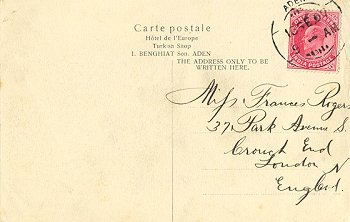 Carte postale
Hôtel de l'Europe
Turkish Shop
I. BENGHIAT Son. ADEN
THE ADDRESS ONLY TO BE
WRITTEN HERE.
ADEN
AM
INDIA POSTAGE
Miss Frances Rogers
37 Park Avenue S.
Crouch End
London N
England.